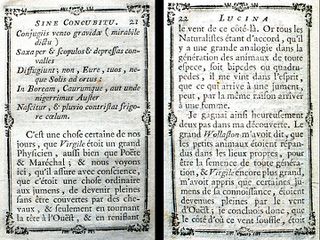 SINE CONCUBITU. 21
Conjugiis vento gravidæ ( mirabile
dictu )
Saxa per & scopulos & depressas con-
valles
Diffugiunt; non, Eure, tuos, ne-
que Solis ad ortus;
In Boream, Caurumque, aut unde
nigerrimus Auster
Nascitur, & pluvio contristat frigo-
re cœlum.
C'est une chose certaine de nos
jours, que Virgile étoit un grand
Physicien, aussi bien que Poëte
& Maréchal; & nous voyons
ici, qu'il assure avec conscience,
que c'étoit une chose ordinaire
aux jumens, de devenir pleines
sans être couvertes par des che-
vaux, & seulement en tournant
la tête à l'Ouëst, & en reniflant
22 LUCINA
le vent de ce côté-là. Or tous les
Naturalistes étant d'accord, qu'il
y a une grande analogie dans la
génération des animaux de toute
espece, soit bipedes ou quadru-
pedes, il me vint dans l'esprit,
que ce qui arrive à une jument,
peut, par la même raison arriver
à une femme.
Je gagnai insensiblement
deux pas dans ma découverte. Le
grand Wollaston m'avoit dit, que
les petits animaux étoient répan-
dus dans les lieux propres, pour
être la semence de toute généra-
tion, & Virgile encore plus grand,
m'avoit appris que certaines ju-
mens de sa connoissance, étoient
devenues pleines par le vent
d'Ouëst, je conclois donc, que
le côté d'où ce vent souffle, étoit